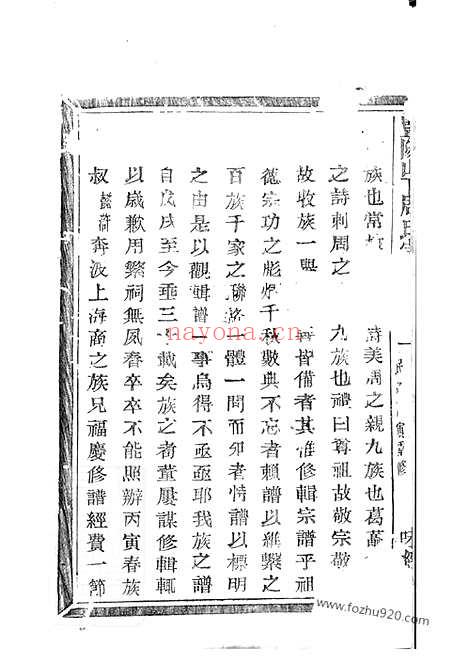 族也常
詩美周之親九族也葛藟
之詩刺周之
九族也禮曰尊祖故敬宗敬
故收族一
皆備者其惟修輯宗譜乎祖
德宗功之彪炳千秋數典不忘者賴譜以維繫之
百族千家之聯 一體一問而知者恃譜以標明
之由是以觀輯譜一事烏得不亟亟耶我族之譜
自戊戌至今垂三 載矣族之耆董屢謀修輯輒
以歲歉用繁祠無夙舂卒卒不能照辦丙寅春族
叔懿 奔波上海商之族兄福慶修譜經費一節
nayona.cn
www.fozhu920.com